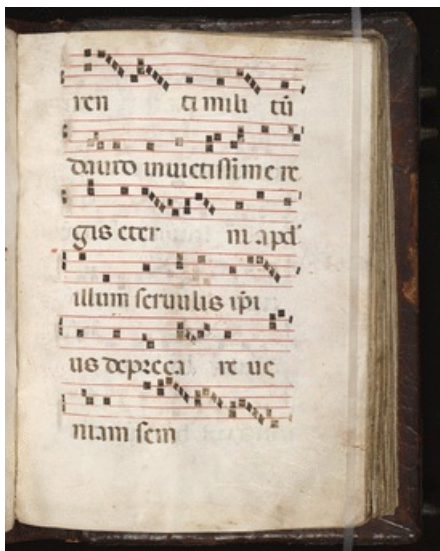 ren ti mili tū
dauro inuictissime re
gis eter ni apd
illum seruulis ip̄i
us depreca re ue
niam sem